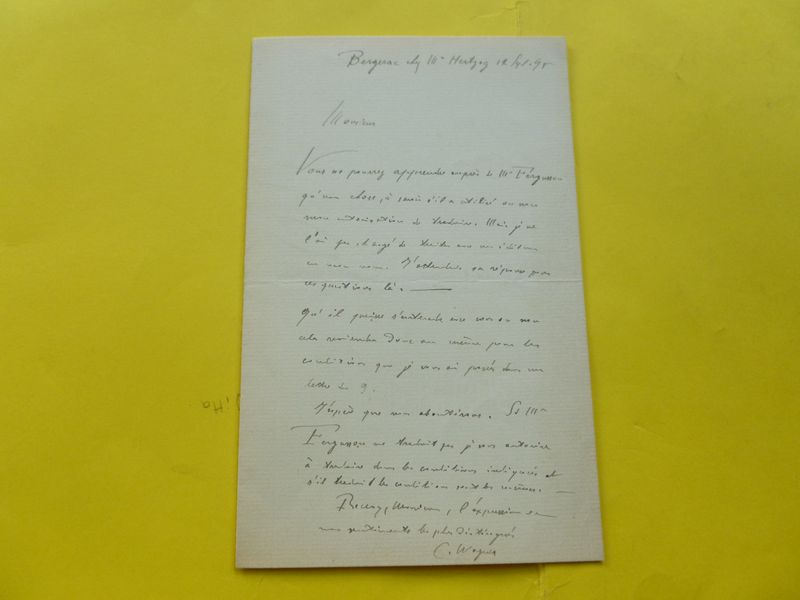 Bergerac chez Mr Hertzog 12 Sept. 95
Monsieur
Vous ne pourrez apprendre auprès de Mr Fergusson
qu'une chose, à savoir s'il a utilisé ou non
mon autorisation de traduire. Mais je ne
l'ai pas chargé de traiter avec un éditeur
en mon nom. J'attendais sa réponse pour
ces questions là. —
Qu'il puisse s'entendre avec vous ou non
cela reviendra donc au même pour les
conditions que je vous ai posées dans ma
lettre du 9.
J'espère que nous aboutirons. Si Mr
Fergusson ne traduit pas je vous autorise
à traduire dans les conditions indiquées et
s'il traduit les conditions sont les mêmes. —
Recevez, Monsieur, l'expression de
mes sentiments les plus distingués
C. Wagner